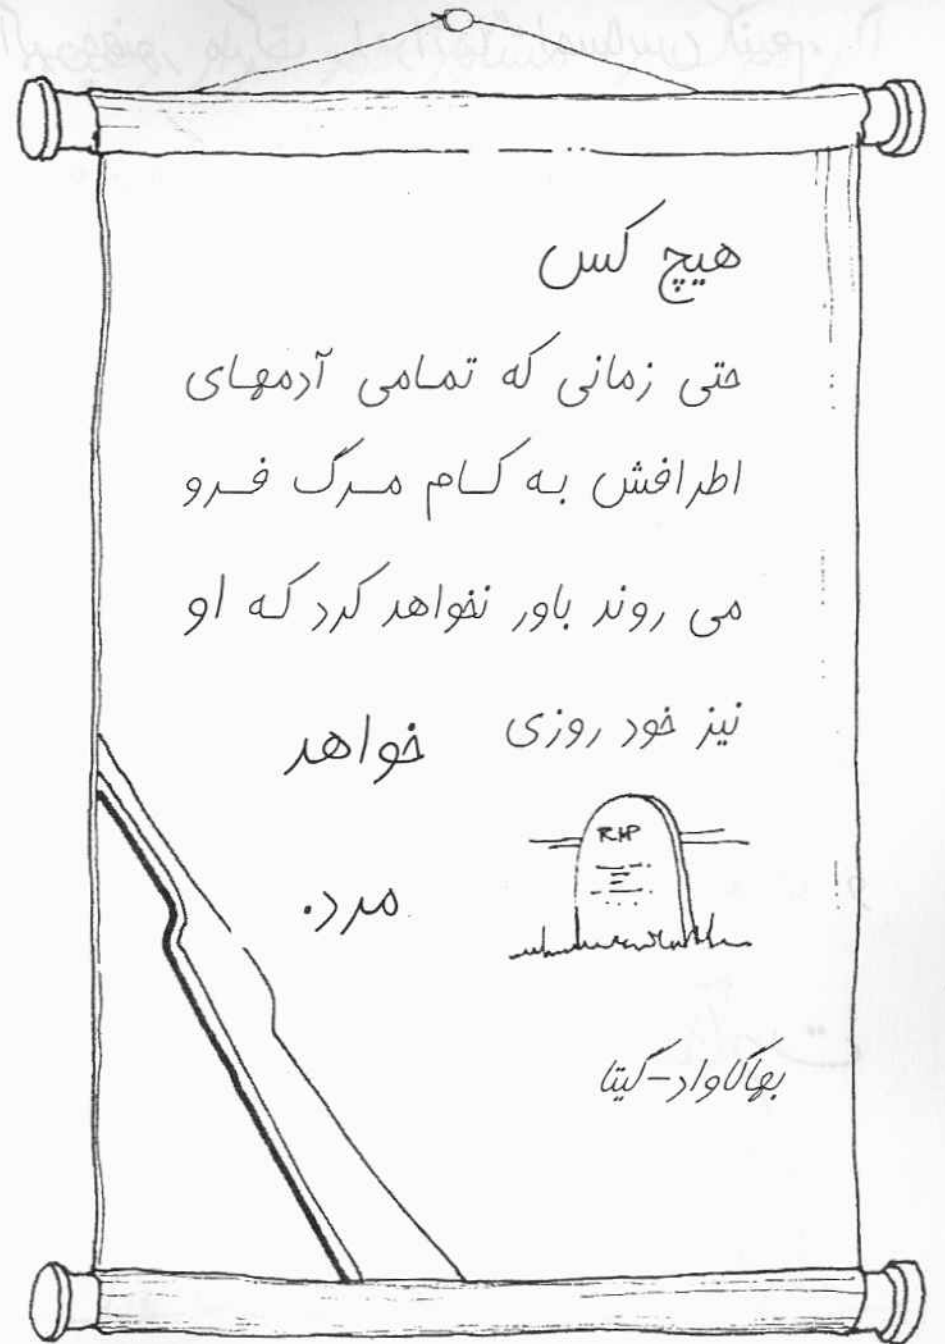 هیچ کس
حتی زمانی که تمامی آدمهای
اطرافش به کام مرگ فرو
می روند باور نخواهد کرد که او
نیز خود روزی خواهد
RIP
مرد.
بهاگاواد-گیتا